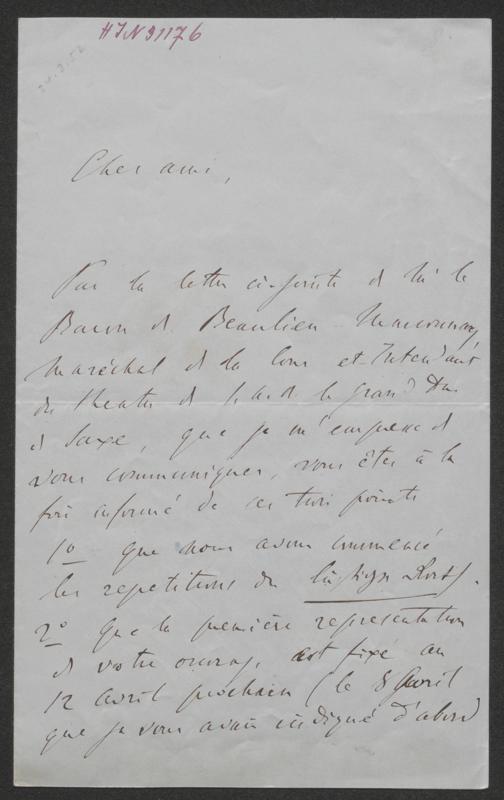 HIN 91176
Cher ami,
Par la lettre ci-jointe de Mr le
Baron de Beaulieu Marconnay
Maréchal de la Cour et Intendant
du theatre de S.A.R. le grand Duc
de Saxe, que je m'empresse de
vous communiquer, vous êtes à la
fois informé de ces trois points
1º que nous avons commencé
les repetitions du
2º que la première representation
de votre ouvrage est fixé au
12 avril prochain (le 8 Avril
que je vous avais indiqué d'abord